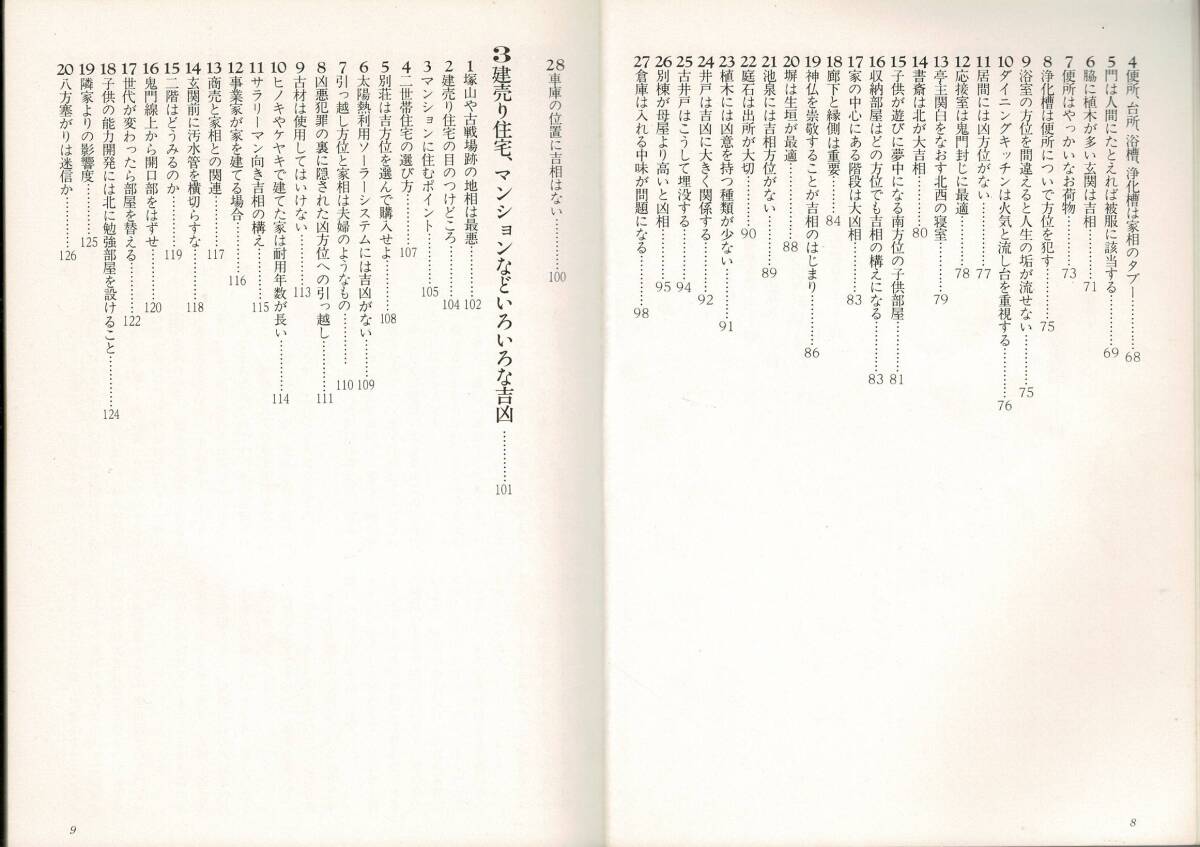 4 便所、台所、浴槽、浄化槽は家相のタブー…………68
5 門は人間にたとえれば被服に該当する…………69
6 脇に植木が多い玄関は吉相…………71
7 便所はやっかいなお荷物…………73
8 浄化槽は便所についで方位を犯す…………75
9 浴室の方位を間違えると人生の垢が流せない…………75
10 ダイニングキッチンは火気と流し台を重視する…………76
11 居間には凶方位がない…………77
12 応接室は鬼門封じに最適…………78
13 亭主関白をなおす北西の寝室…………79
14 書斎は北が大吉相…………80
15 子供が遊びに夢中になる南方位の子供部屋…………81
16 収納部屋はどの方位でも吉相の構えになる…………83
17 家の中心にある階段は大凶相…………83
18 廊下と縁側は重要…………84
19 神仏を崇敬することが吉相のはじまり…………86
20 塀は生垣が最適…………88
21 池泉には吉相方位がない…………89
22 庭石は出所が大切…………90
23 植木には凶意を持つ種類が少ない…………91
24 井戸は吉凶に大きく関係する…………92
25 古井戸はこうして埋没する…………94
26 別棟が母屋より高いと凶相…………95
27 倉庫は入れる中味が問題になる…………98
8
28 車庫の位置に吉相はない…………100
3 建売り住宅、マンションなどいろいろな吉凶…………101
1 塚山や古戦場跡の地相は最悪…………102
2 建売り住宅の目のつけどころ…………104
3 マンションに住むポイント…………105
4 二世帯住宅の選び方…………107
5 別荘は吉方位を選んで購入せよ…………108
6 太陽熱利用ソーラーシステムには吉凶がない…………109
7 引っ越し方位と家相は夫婦のようなもの…………110
8 凶悪犯罪の裏に隠された凶方位への引っ越し…………111
9 古材は使用してはいけない…………113
10 ヒノキやケヤキで建てた家は耐用年数が長い…………114
11 サラリーマン向き吉相の構え…………115
12 事業家が家を建てる場合…………116
13 商売と家相との関連…………117
14 玄関前に汚水管を横切らすな…………118
15 二階はどうみるのか…………119
16 鬼門線上から開口部をはずせ…………120
17 世代が変わったら部屋を替える…………122
18 子供の能力開発には北に勉強部屋を設けること…………124
19 隣家よりの影響度…………125
20 八方塞がりは迷信か…………126
9